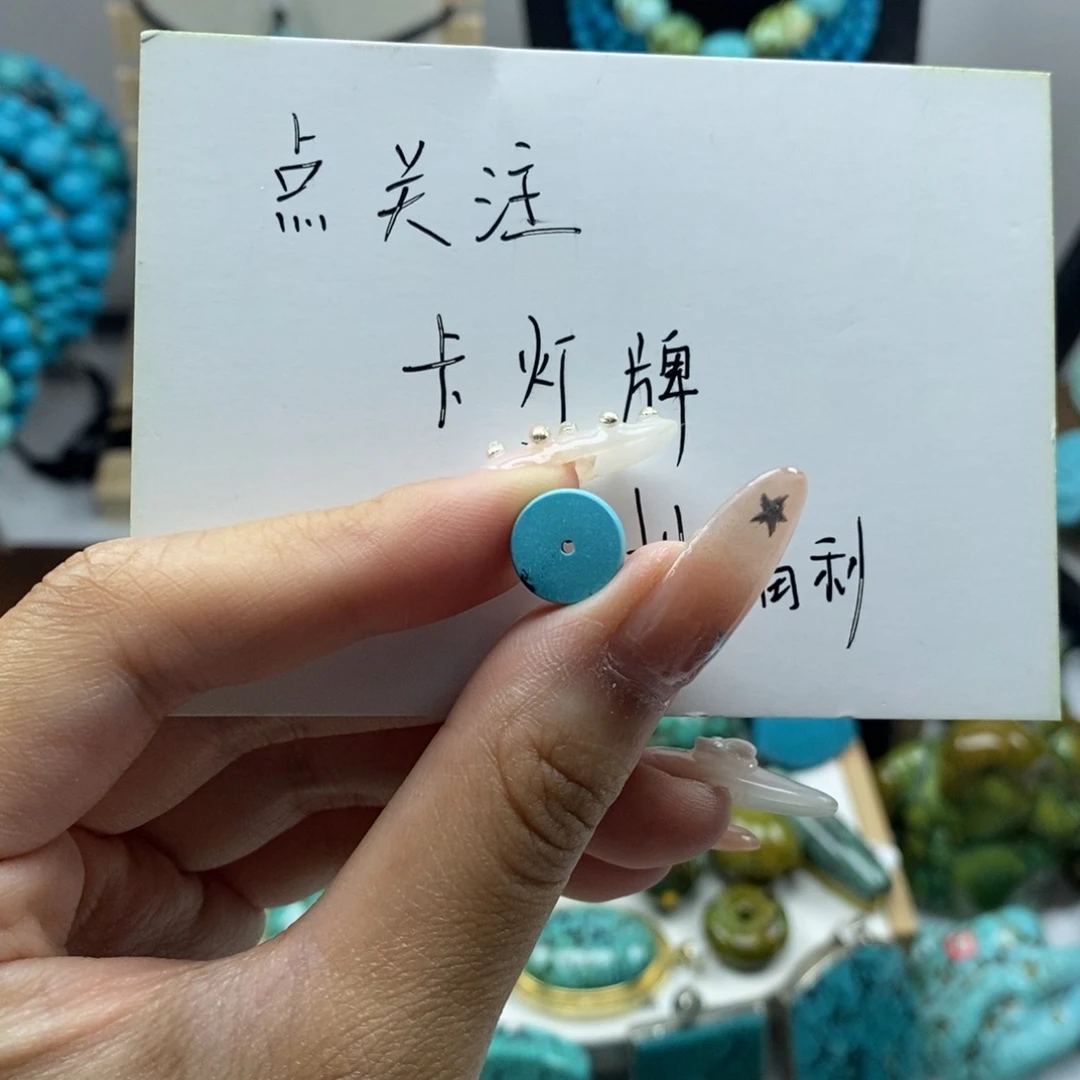 点关注
卡灯牌
利